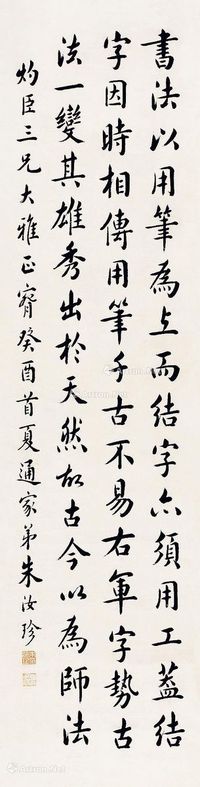 書法以用筆為上而結字亦須用工蓋結
字因時相傳用筆千古不易右軍字勢古
法一變其雄秀出於天然故古今以為師法
灼臣三兄大雅正窗癸酉首夏通家弟朱汝珍